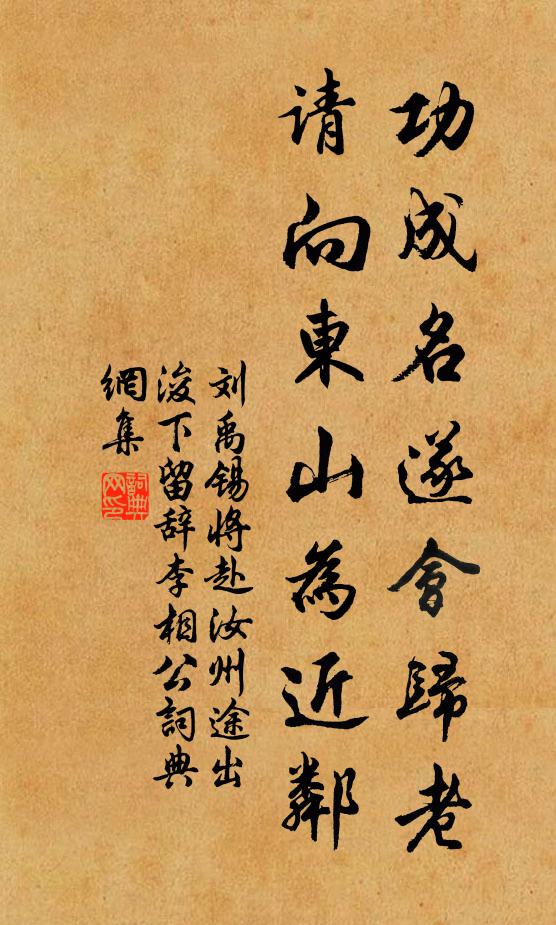 功成名遂會歸老
请向東山為近鄰
刘禹锡将赴汝州途出
浚下留辞李相公詞典
網集
詞典
网印